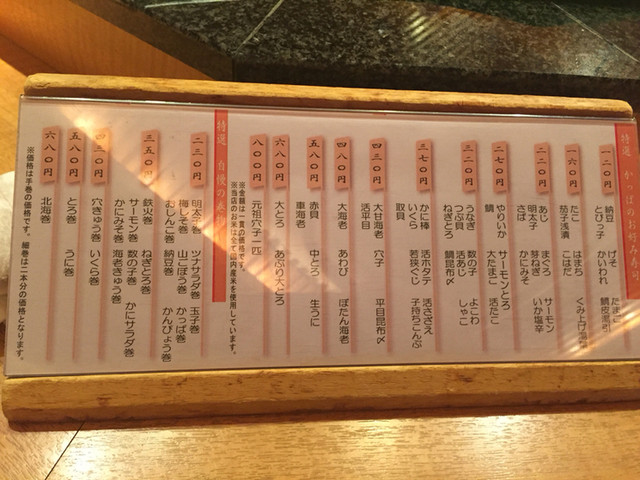 一二〇円
納豆 げそ たまご
とびっ子 かいわれ 鯛皮湯引
一六〇円
たこ はまち くみ上げ
茄子浅漬 こはだ
二二〇円
あじ まぐろ サーモン
明太子 芽ねぎ いか塩辛
さば かにみそ
二七〇円
やりいか サーモンとろ 活たこ
鯛 大たまご
三二〇円
うなぎ 数の子 よこわ
つぶ貝 活あじ しゃこ
ねぎとろ 鯛昆布〆
三七〇円
かに棒 活ホタテ 活さざえ
いくら 若狭ぐじ 子持ちこんぶ
取貝
四三〇円
大甘海老 穴子 平目昆布〆
活平目
四八〇円
大海老 あわび ぼたん海老
五八〇円
赤貝 中とろ 生うに
車海老
六八〇円
大とろ あぶり大とろ
八〇〇円
元祖穴子一匹
※金額は一貫の価格です。
※当店のお米は全て国内産米を使用しています。
特選 自慢の
二三〇円
明太子巻 ツナサラダ巻 玉子巻
梅しそ巻 山ごぼう巻 かっぱ巻
おしんこ巻 納豆巻 かんぴょう巻
三五〇円
鉄火巻 ねぎとろ巻
サーモン巻 数の子巻 かにサラダ巻
かにみそ巻 海老きゅう巻
四三〇円
穴きゅう巻 いくら巻
五八〇円
とろ巻 うに巻
六八〇円
北海巻
※価格は手巻の価格です。細巻は二本分の価格となります。